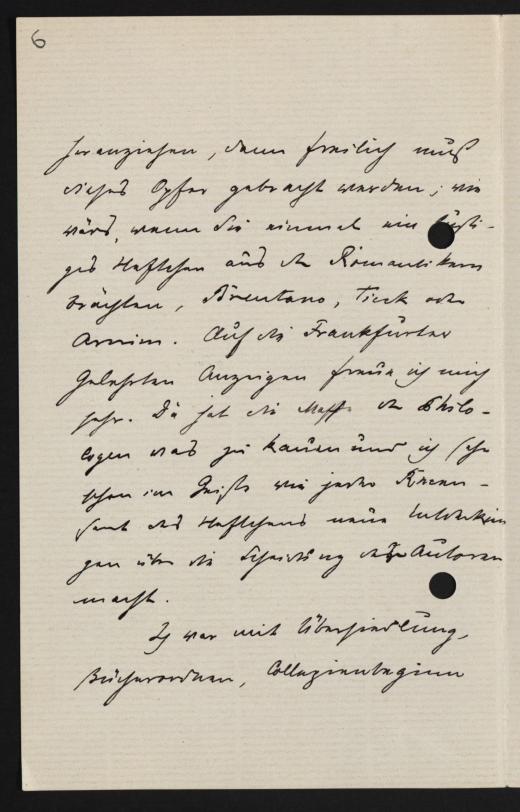 6
heranziehen, denn freilich muß
dieses Opfer gebracht werden; wie
wärs, wenn Sie einmal ein lusti-
ges Heftchen aus den Romantikern
brächten, Brentano, Tieck oder
Arnim. Auf die Frankfurter
Gelehrten Anzeigen freue ich mich
sehr. Da hat die der Philo-
logen was zu kauen und ich sehe
schon im Geiste wie jeder Recen-
sent des Heftchens neue Entdeckun
gen über die Scheidung der Autoren
macht.
Ich war mit Übersiedlung,
Bücherordnen, Collegienbeginn